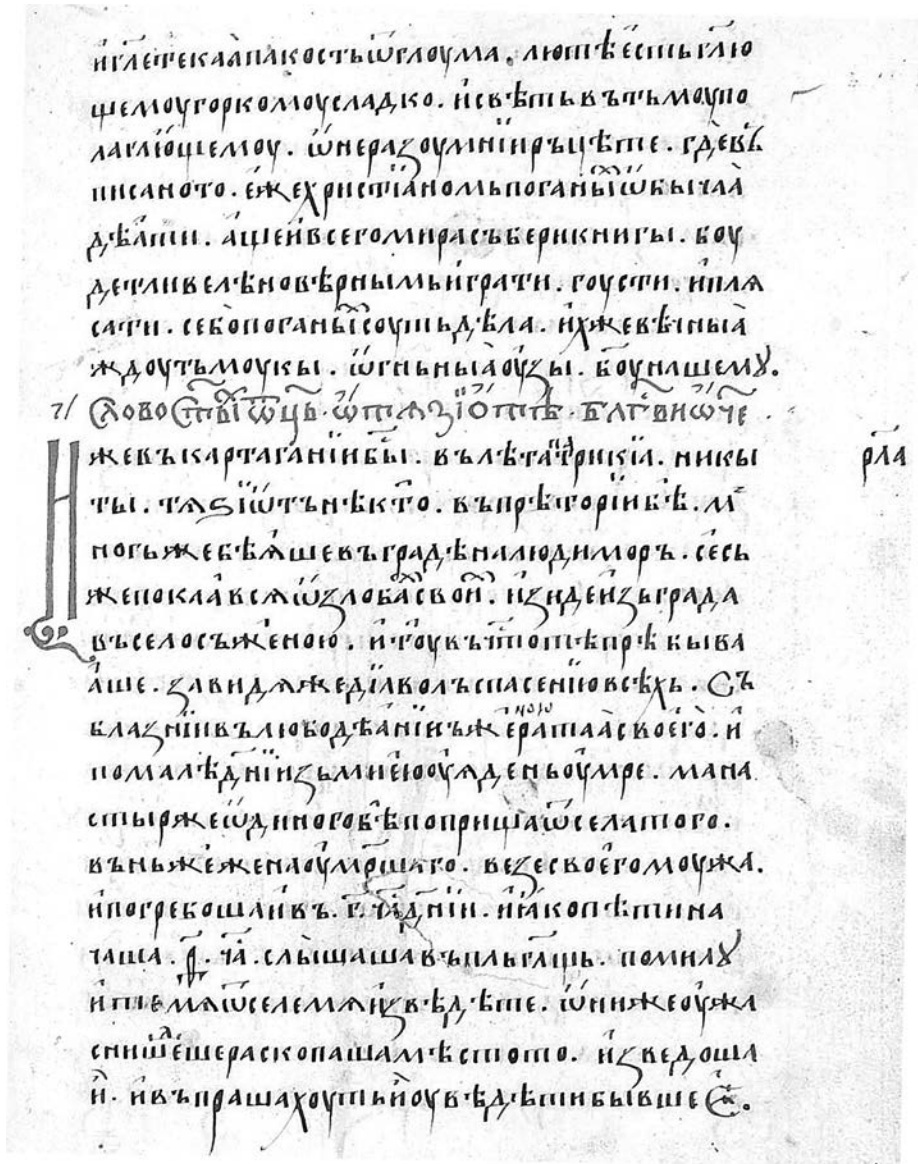 и҆гл҃етекаꙗ҆пакостьѿглоума. лютѣе҆стьгл҃ю
щемоугоркомоусладко. и҆свѣтьвътьмоупо
лаглю҆щемоу. ѡ҆неразоумнїирьцѣте. гдѐвъ
писаното. е҆жехристїаномьпоганыⷯѡ҆бычаꙗ
дѣꙗ҆ти. ащеи҆всегомирасъберикнигы. боу
детливелѣновѣрнымъи҆грати. гоусти. и҆пля
сати. себопоганыⷯсоутьдѣла. и҆хжевѣчныꙗ
ждоутьмоукы. ѡ҆гньныꙗ҆оузы. бо҃унашемꙋ.
Словост҃ыⷯѿц҃ь. ѡ҆тязїѡ҆тѣ. бл҃гвиѡ҆ч҃е
жевъкартагенїибы҃. вълѣтаⷫ҇трикїа. никы
ты. тяѕїѡ҆тънѣкто. въпрѣторїибѣ. м
ногьжебѣꙗ҆шевъградѣналюдиморъ. сесь
жепокаꙗ҆всяѿзлобъсвоиⷯ. и҆зиде и҆зьграда
въселосъженою. и҆тоувътⷪ҇тѣпрѣбыва
а҆ше. завидяжедїаволъспасенїювсѣхъ. Съ
блазнїивълюбодѣанїисъженоюратаꙗ҆своего. и҆
помалѣдн҃їи҆зьмиеюоу҆яденьоу҆мре. мана
стырже ѡ҆диногобѣпоприщаѿселатого.
въньжеженаоу҆мр҃шаго. везесвоегомоужа.
и҆погребошаи҆въ. г҃. ча҆дн҃їи. и҆ꙗ҆копѣтина
чаша. ф҃. ча҆. слышашавъпльгл҃щь. помилꙋ
и҆темяѿселемяи҆звѣдѣте. ѡ҆нижеоу҆жа
снишⷶешераскопашамѣстото. и҆зведоша
и҆. и҆въпрашахоутьи҆оу҆вѣдѣтибывшеⷷ.
рл҃а